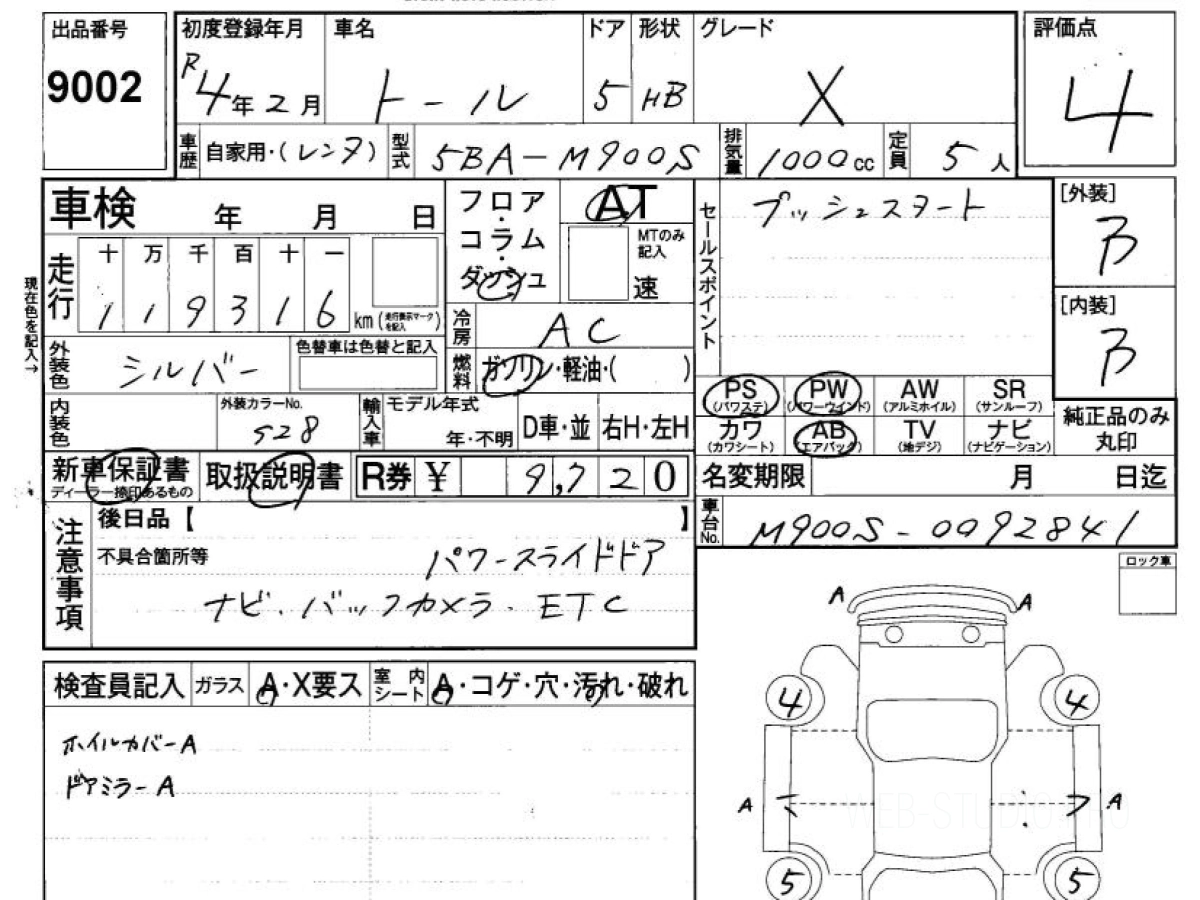 出品番号
9002
初度登録年月 車名 ドア 形状 グレード
R4年2月 トール 5 HB X
評価点
4
車歴 自家用・(レンタ) 型式 5BA-M900S 排気量 1000cc 定員 5人
車検 年 月 日
フロア・コラム・ダッシュ
AT
MTのみ記入
速
セールスポイント
プッシュスタート
[外装]
B
[内装]
B
現在色を記入→
走行 十 万 千 百 十 一
1 1 9 3 1 6 km (走行表示マークを記入)
冷房 AC
外装色 シルバー 色替車は色替と記入
燃料 ガソリン・軽油・( )
内装色 外装カラーNo. S28
輸入車 モデル年式 年・不明 D車・並 右H・左H
PS (パワステ) PW (パワーウインド) AW (アルミホイル) SR (サンルーフ)
カワ (カワシート) AB (エアバック) TV (地デジ) ナビ (ナビゲーション)
純正品のみ丸印
新車保証書 ディーラー捺印あるもの 取扱説明書 R券 ¥ 9,720
名変期限 月 日迄
車台No. M900S-0092841
注意事項
後日品【 】
不具合箇所等 パワースライドドア
ナビ・バックカメラ・ETC
ロック車
検査員記入 ガラス A・X要ス 室内シート A・コゲ・穴・汚れ・破れ
ホイルカバーA
ドアミラーA
A A
4 4
A A
5 5
WEB-STUDIO.PRO